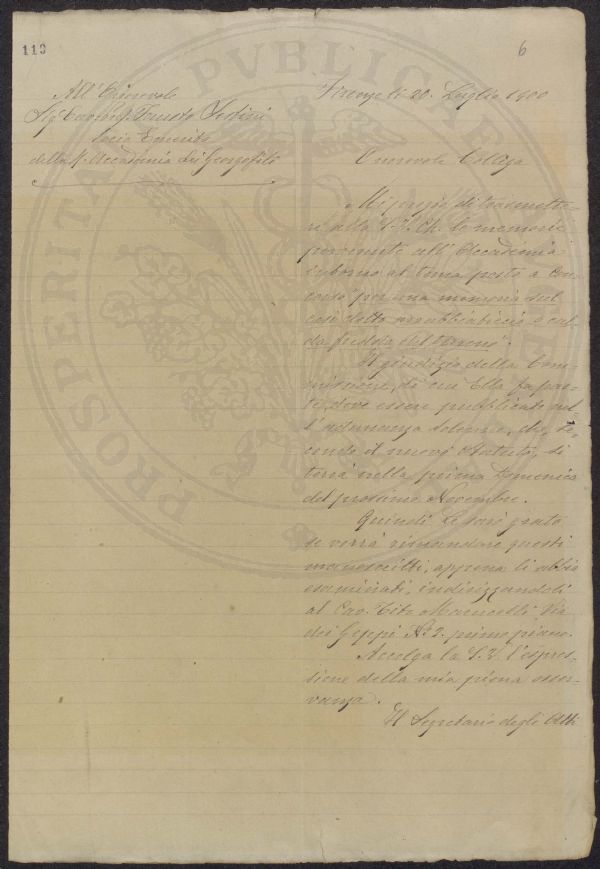 113
6
All' Onorevole
Sig. Cav. Prof. Fausto Sestini
Socio Emerito
della R. Accademia dei Georgofili
Firenze li 20. Luglio 1900
Onorevole Collega
Mi pregio di trasmette-
re alla S. V. Ch. le memorie
pervenute all' Accademia
intorno al tema posto a Con-
corso "per una memoria sul
così detto arrabbiaticcio o cal-
da fredda del terreno".
Il giudizio della Com-
missione, di cui Ella fa par-
te, deve essere pubblicato nel-
l' adunanza solenne, che, se-
condo il nuovo Statuto, si
terrà nella prima Domenica
del prossimo Novembre.
Quindi Le sarò grato
se vorrà rimandare questi
manoscritti, appena li abbia
esaminati, indirizzandoli
al Cav. Vito Via
dei Geppi N. 2. primo piano.
Accolga la S. V. l'espres-
sione della mia piena osser-
vanza.
Il Segretario degli Atti
PVBLICAE
PROSPERITA